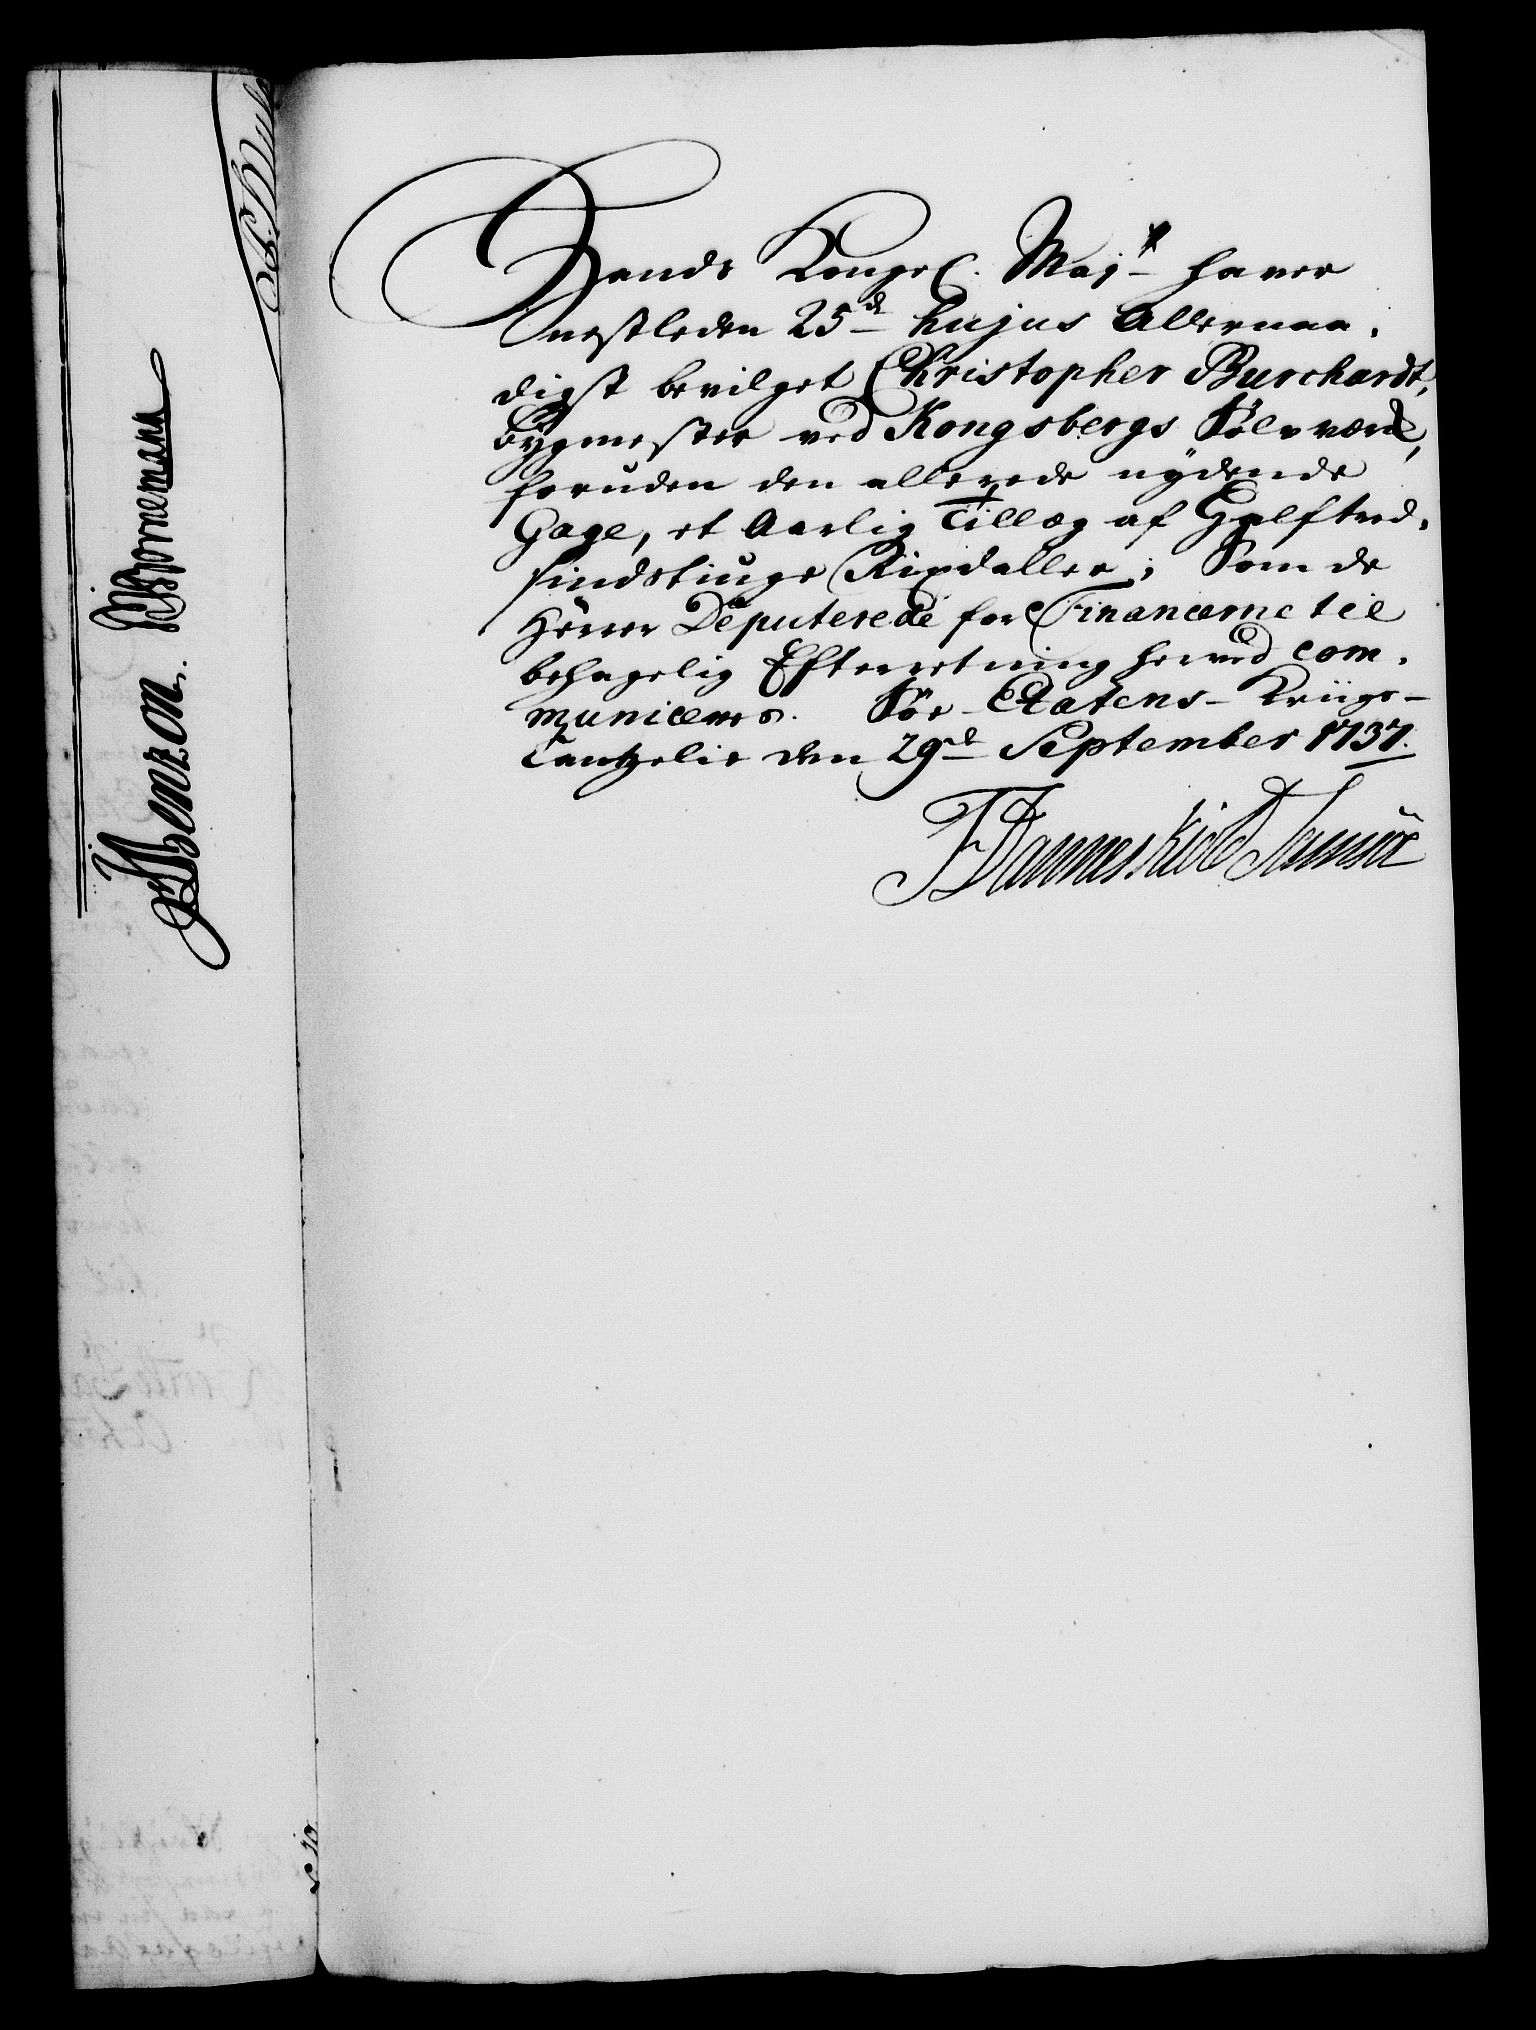 Hands Kongel. Maj.t haver
nestleden 25.d hujus Allernaa-
digst bevilget Christopher Burchardt,
Bÿgmester ved Kongsbergs Sölvværk,
foruden den allerede nÿdende
Gage, et Aarlig Tillæg af Halftred-
sindstiuge Rixdaller; Som de
Herrer Deputerede for Financerne til
behagelig Efterretning herved com-
municeres. Söe-Etatens-Kriigs-
Cantzelie den 29.d September 1737.
FDanneskiold Samsöe
JBenzon.
Bornemann